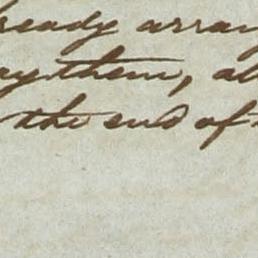 ready arran
ay them, al
the end of